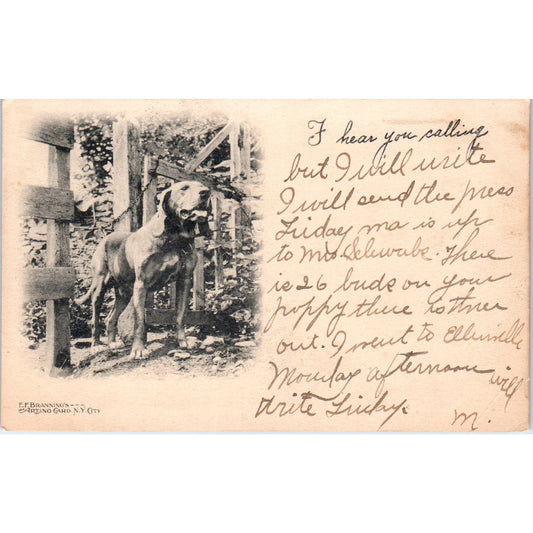 I hear you calling
but I will write
I will send the press
Friday, ma is up
to Mrs. Schwabs. There
is 26 buds on your
poppy there is three
out. I went to Ellenville
Monday afternoon will
write Friday.
M.
E.F. BRANNING'S
ARTINO CARD, N.Y. CITY